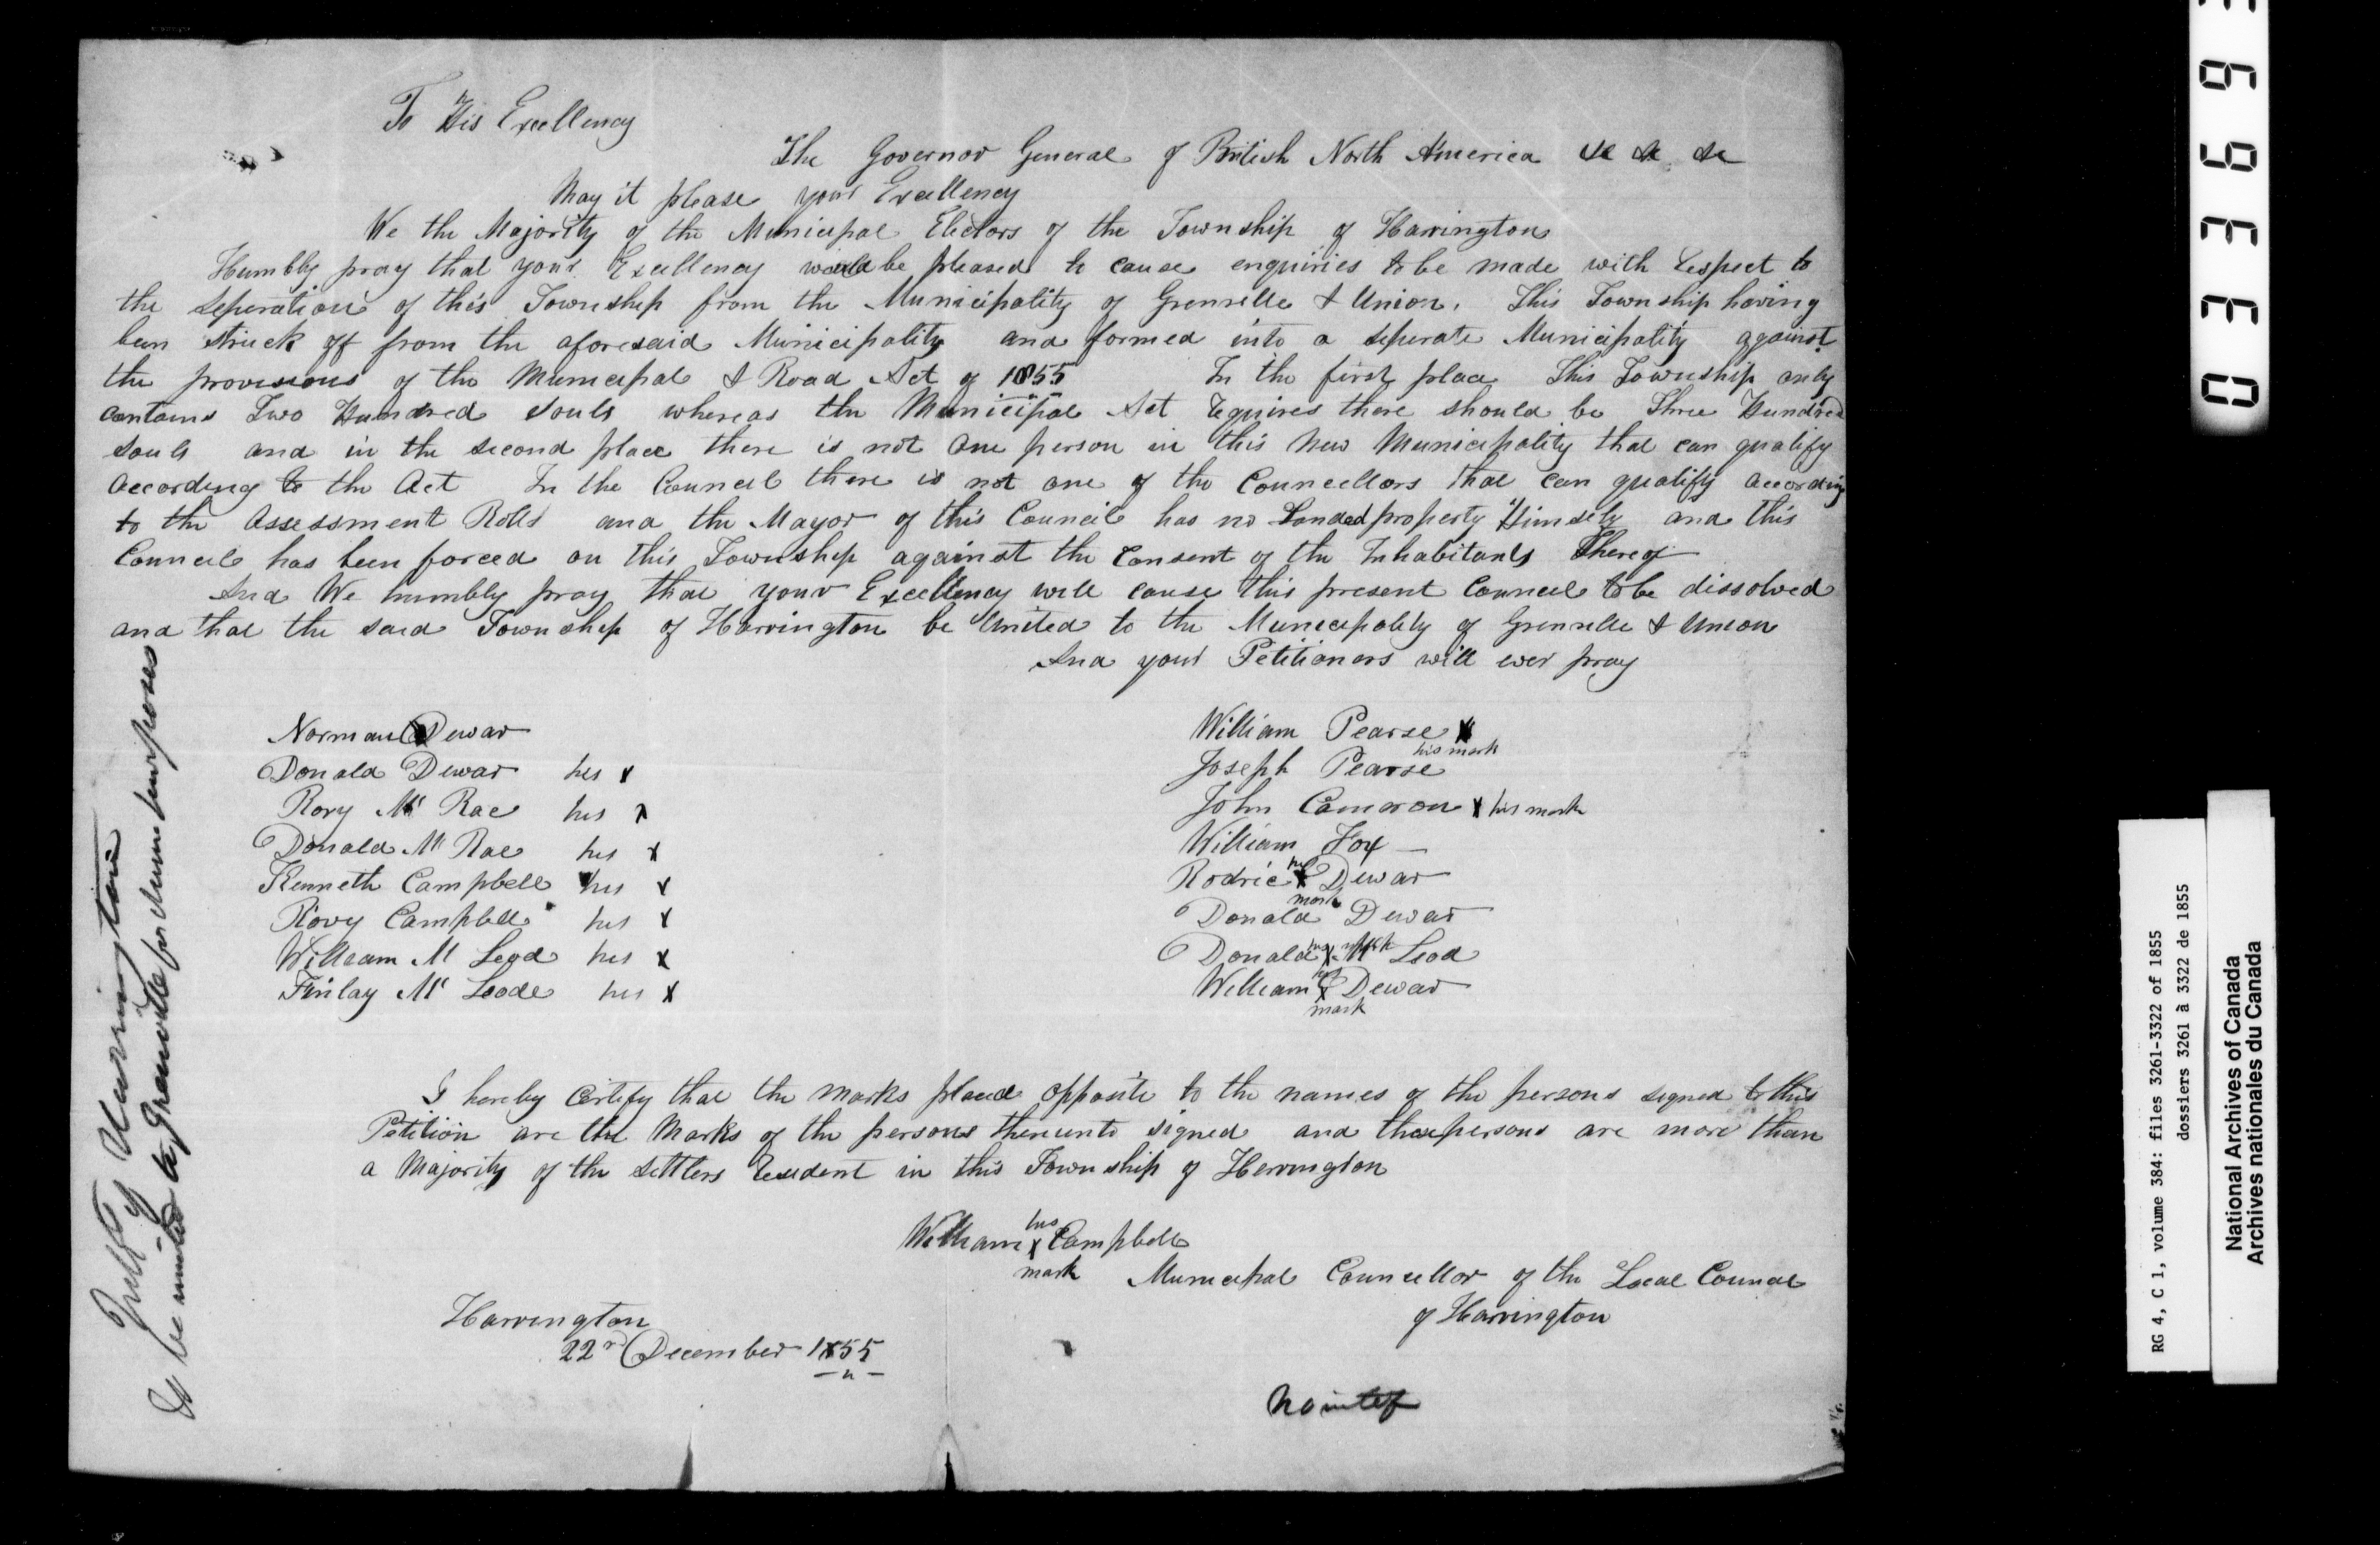 To His Excellency
The Governor General of British North America &c &c &c
May it please your Excellency
We the Majority of the Municipal Electors of the Township of Harrington
Humbly pray that your Excellency would be pleased to cause enquiries to be made with respect to
the seperation of this Township from the Municipality of Grenville & Union. This Township having
been struck off from the aforesaid Municipality and formed into a seperate Municipality against
the provisions of the Municipal & Road Act of 1855 In the first place This Township only
contains Two Hundred souls whereas the Municipal Act requires there should be Three Hundred
souls and in the second place there is not one person in this New Municipality that can qualify
according to the Act In the Council there is not one of the Councellors that can qualify according
to the Assessment Rolls and the Mayor of this Council has no Landed property Himself and this
Council has been forced on this Township against the Consent of the Inhabitants Thereof
And We humbly pray that your Excellency will cause this present Council to be dissolved
and that the said Township of Harrington be United to the Municipality of Grenville & Union
And your Petitioners will ever pray
Norman Dewar
Donald Dewar his x
Rory Mc Rae his x
Donald Mc Rae his x
Kenneth Campbell his x
Rory Campbell his x
William Mc Leod his x
Finlay Mc Leode his x
William Pearse x
his mark
Joseph Pearse
John Cameron x his mark
William Fox
Rodric his x mark Dewar
Donald Dewar
Donald his x mark Mc Leod
William his x mark Dewar
I hereby Certify that the marks placed opposite to the names of the persons signed to this
Petition are the Marks of the persons thereunto signed and these persons are more than
a Majority of the settlers resident in this Township of Harrington
William his x mark Campbell
Municipal Councellor of the Local Council
of Harrington
Harrington
22nd December 1855
Harrington
to be united to Grenville for purposes
033693
RG 4, C 1, volume 384: files 3261-3322 of 1855
dossiers 3261 à 3322 de 1855
National Archives of Canada
Archives nationales du Canada